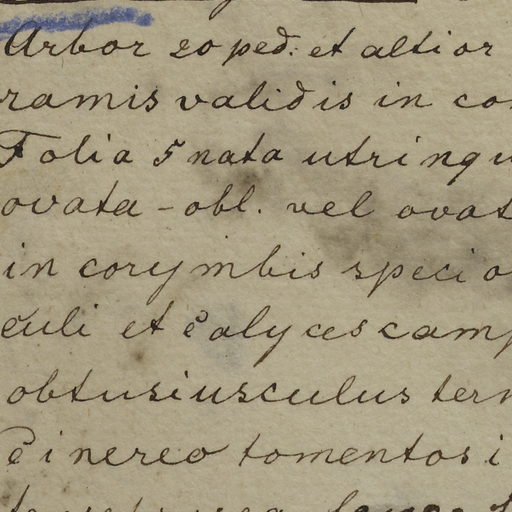 Arbor 20 ped: et altior
ramis validis in co
Folia 5nata utrinqu
ovata - obl. vel ovat
in corymbis specio
culi et calyces camp
obtusiusculus tern
Cinereo tomentosi